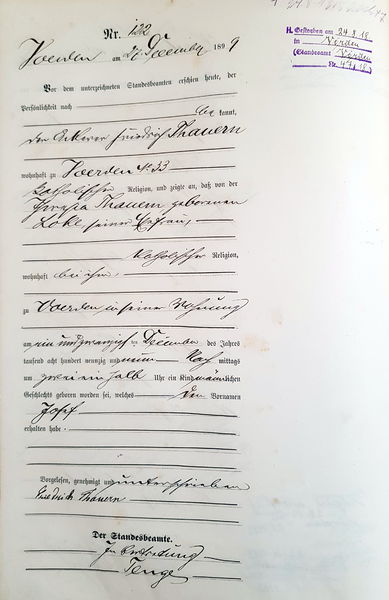 H. Gestorben am 24.8.18
in Vörden
(Standesamt Vörden
Nr. 47/18.)
Nr. 132
Voerden am 27 December 1899
Vor dem unterzeichneten Standesbeamten erschien heute, der
Persönlichkeit nach
be kannt,
der Ackerer Friedrich Thauern
wohnhaft zu Voerden No 33
katholischer Religion, und zeigte an, daß von der
Theresia Thauern geborenen
seiner Ehefrau,
katholischer Religion,
wohnhaft bei ihm,
zu Voerden in seiner Wohnung
am ein und zwanzigsten December des Jahres
tausend acht hundert neunzig und neun Nach mittags
um zwei ein halb Uhr ein Kind männlichen
Geschlechts geboren worden sei, welches den Vornamen
Josef
erhalten habe.
Vorgelesen, genehmigt und unterschrieben
Friedrich Thauern
Der Standesbeamte.
In Vertretung
Tenge